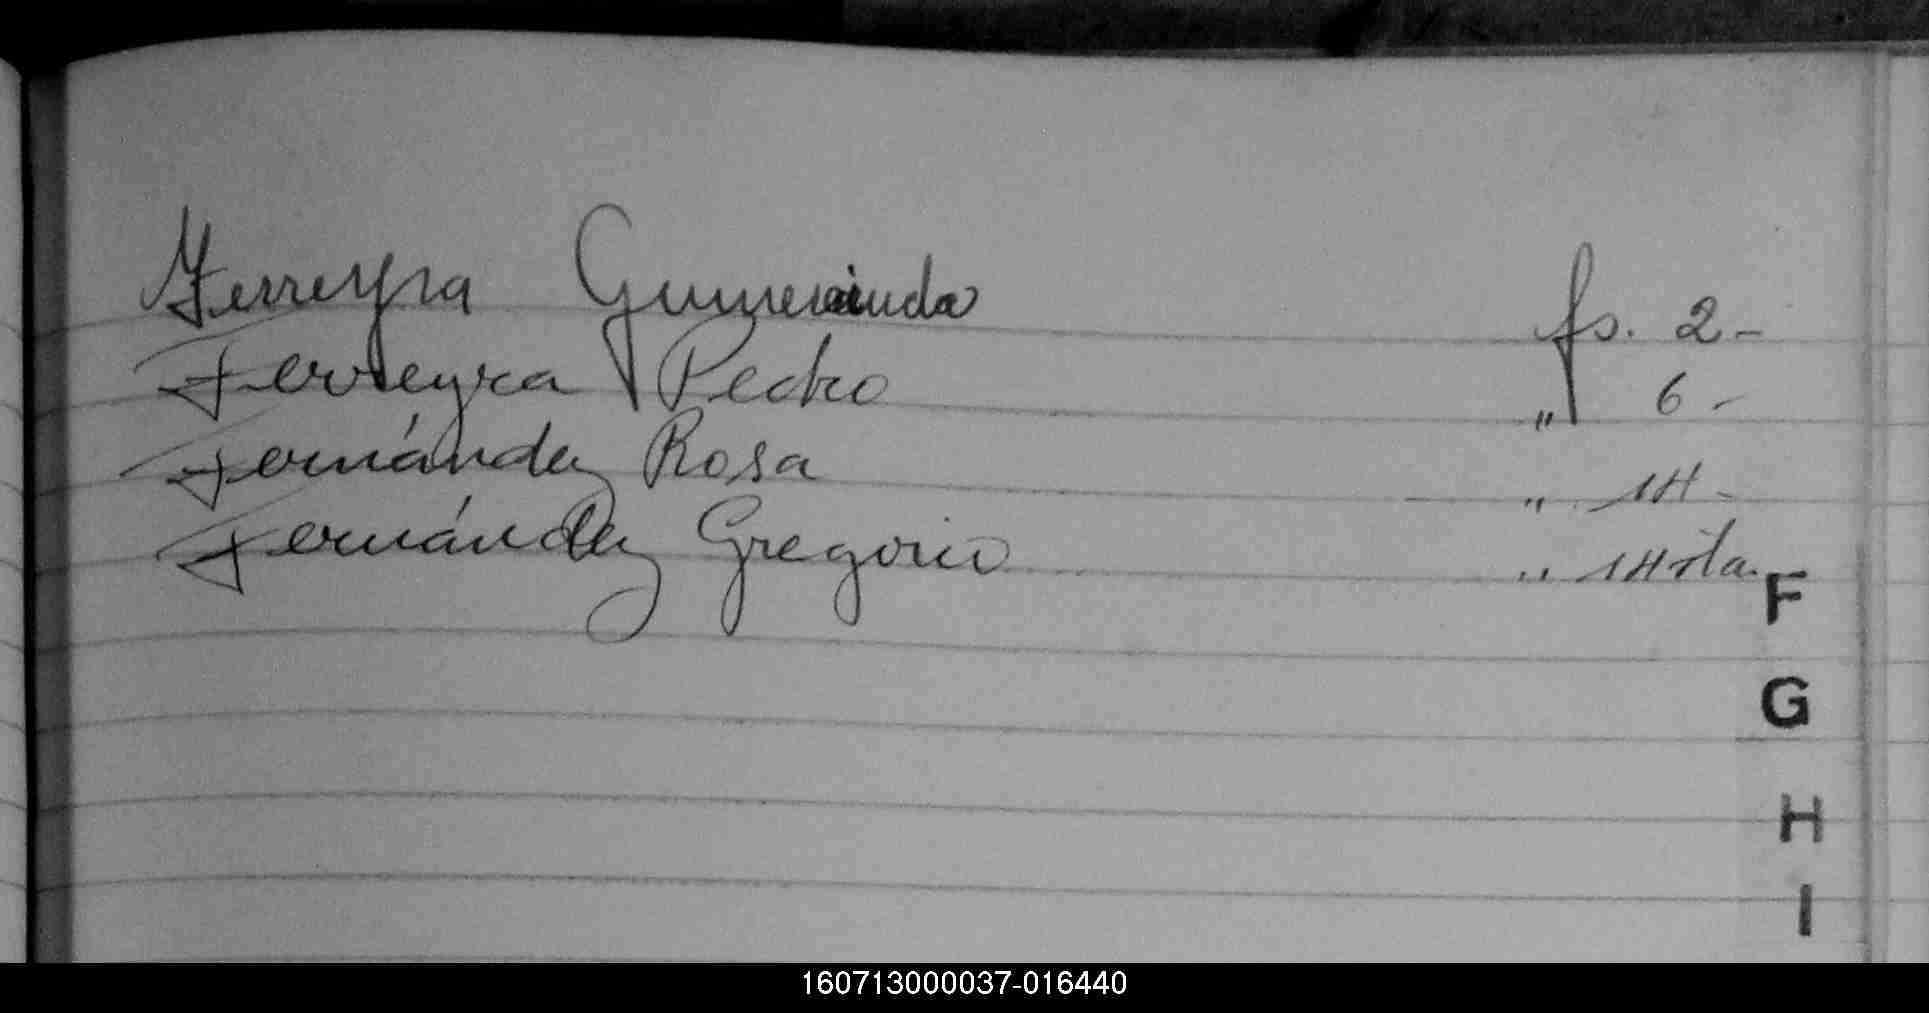 Ferreyra Gumersinda fs. 2-
Ferreyra Pedro " 6-
Fernández Rosa " 14-
Fernández Gregorio " 14 vta.
F
G
H
I
160713000037-016440